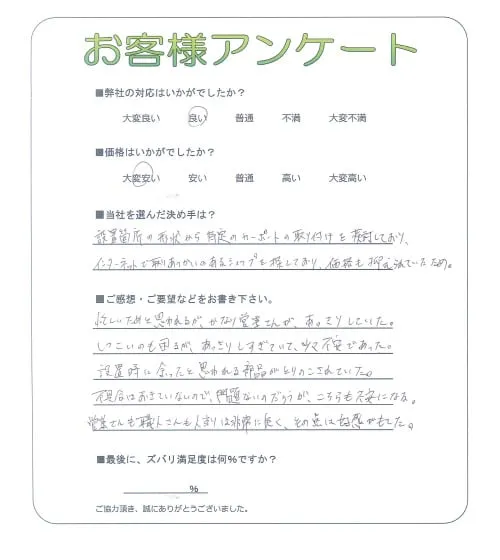 お客様アンケート
■弊社の対応はいかがでしたか？
大変良い 良い 普通 不満 大変不満
■価格はいかがでしたか？
大変安い 安い 普通 高い 大変高い
■当社を選んだ決め手は？
設置箇所の形状から特定のカーポートの取り付けを検討しており、
インターネットで取りあつかいのあるショップを探しており、価格も抑えられていたため。
■ご感想・ご要望などをお書き下さい。
忙しいためと思われるが、かなり営業さんが、あっさりしていた。
しつこいのも困るが、あっさりしすぎていて、少々不安であった。
設置時に余ったと思われる部品がとりのこされていた。
不具合はおきていないので、問題ないのだろうが、こちらも不安になる。
営業さんも職人さんも人あたりは非常に良く、その点は好感がもてた。
■最後に、ズバリ満足度は何%ですか？
%
ご協力頂き、誠にありがとうございました。